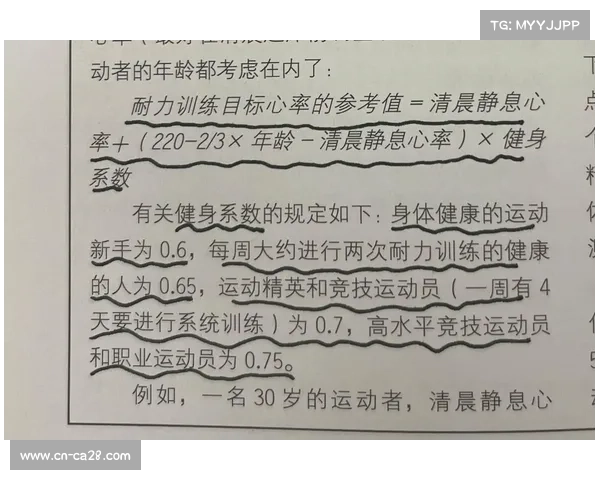 TG: MYYJJPP
动者的年龄都考虑在内了：
耐力训练目标心率的参考值 = 清晨静息心
率+（220-2/3× 年龄 - 清晨静息心率）× 健身
系数
有关健身系数的规定如下：身体健康的运动
新手为 0.6，每周大约进行两次耐力训练的健康
的人为 0.65，运动精英和竞技运动员（一周有 4
天要进行系统训练）为 0.7，高水平竞技运动员
和职业运动员为 0.75。
例如，一名 30 岁的运动者，清晨静息心
www.cn-ca28.com